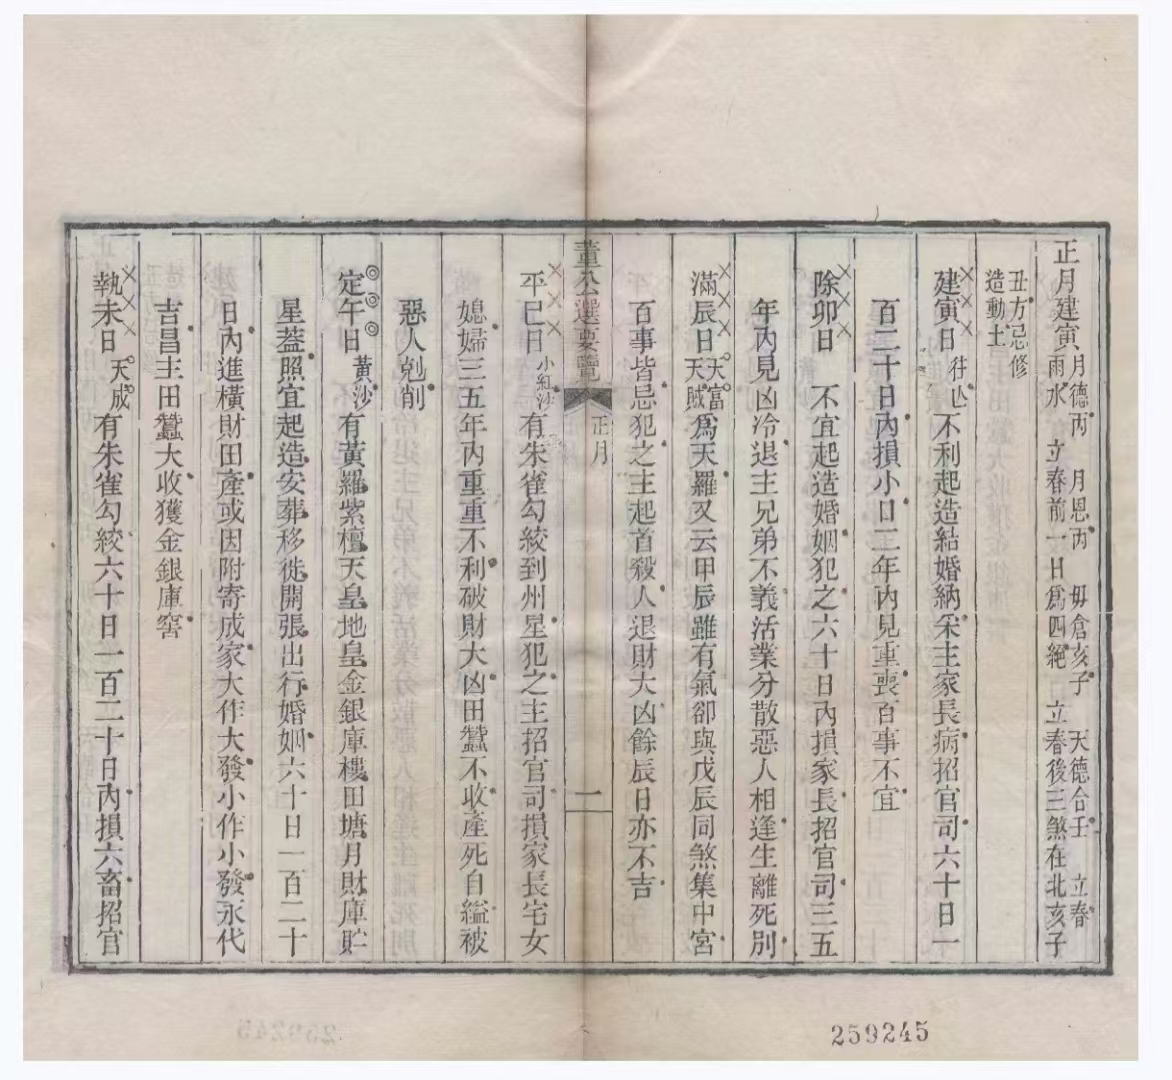 正月建寅月德丙 月恩丙 毋倉亥子 天德合壬 立春
雨水 立春前一日爲四絕 立春後三煞在北亥子
丑方忌修
造動土
建寅日往亾不利起造結婚納采主家長病招官司六十日一
百二十日內損小口二年內見重喪百事不宜
除卯日 不宜起造婚姻犯之六十日內損家長招官司三五
年內見凶冷退主兄弟不義活業分散惡人相逢生離死別
滿辰日天富
天賊爲天羅又云甲辰雖有氣卻與戊辰同煞集中宮
百事皆忌犯之主起首殺人退財大凶餘辰日亦不吉
董公選要覽 正月 一
平巳日小紅沙有朱雀勾絞到州星犯之主招官司損家長宅女
媳婦三五年內重重不利破財大凶田蠶不收產死自縊被
惡人剋削
定午日黃沙有黃羅紫檀天皇地皇金銀庫樓田塘月財庫貯
星蓋照宜起造安葬移徙開張出行婚姻六十日一百二十
日內進橫財田產或因附寄成家大作大發小作小發永代
吉昌主田蠶大收獲金銀庫窖
執未日天成有朱雀勾絞六十日一百二十日內損六畜招官
259245